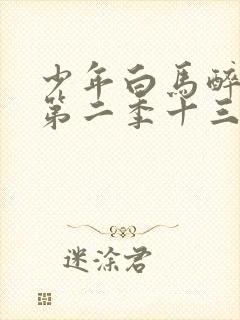 少年白馬醉
第二季十三
迷涂君